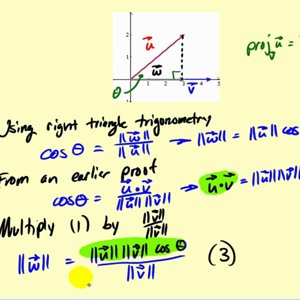 2
1
0 1 2 3 4 5
u⃗
w⃗
θ
v⃗
proj_v⃗ u⃗ =
Using right triangle trigonometry
cos θ = ‖w⃗‖ / ‖u⃗‖ → ‖w⃗‖ = ‖u⃗‖ cos
From an earlier Proof
cos θ = u⃗ · v⃗ / ‖u⃗‖ ‖v⃗‖ → u⃗ · v⃗ = ‖u⃗‖ ‖v⃗‖
Multiply (1) by ‖v⃗‖ / ‖v⃗‖
‖w⃗‖ = ‖u⃗‖ ‖v⃗‖ cos θ / ‖v⃗‖ (3)